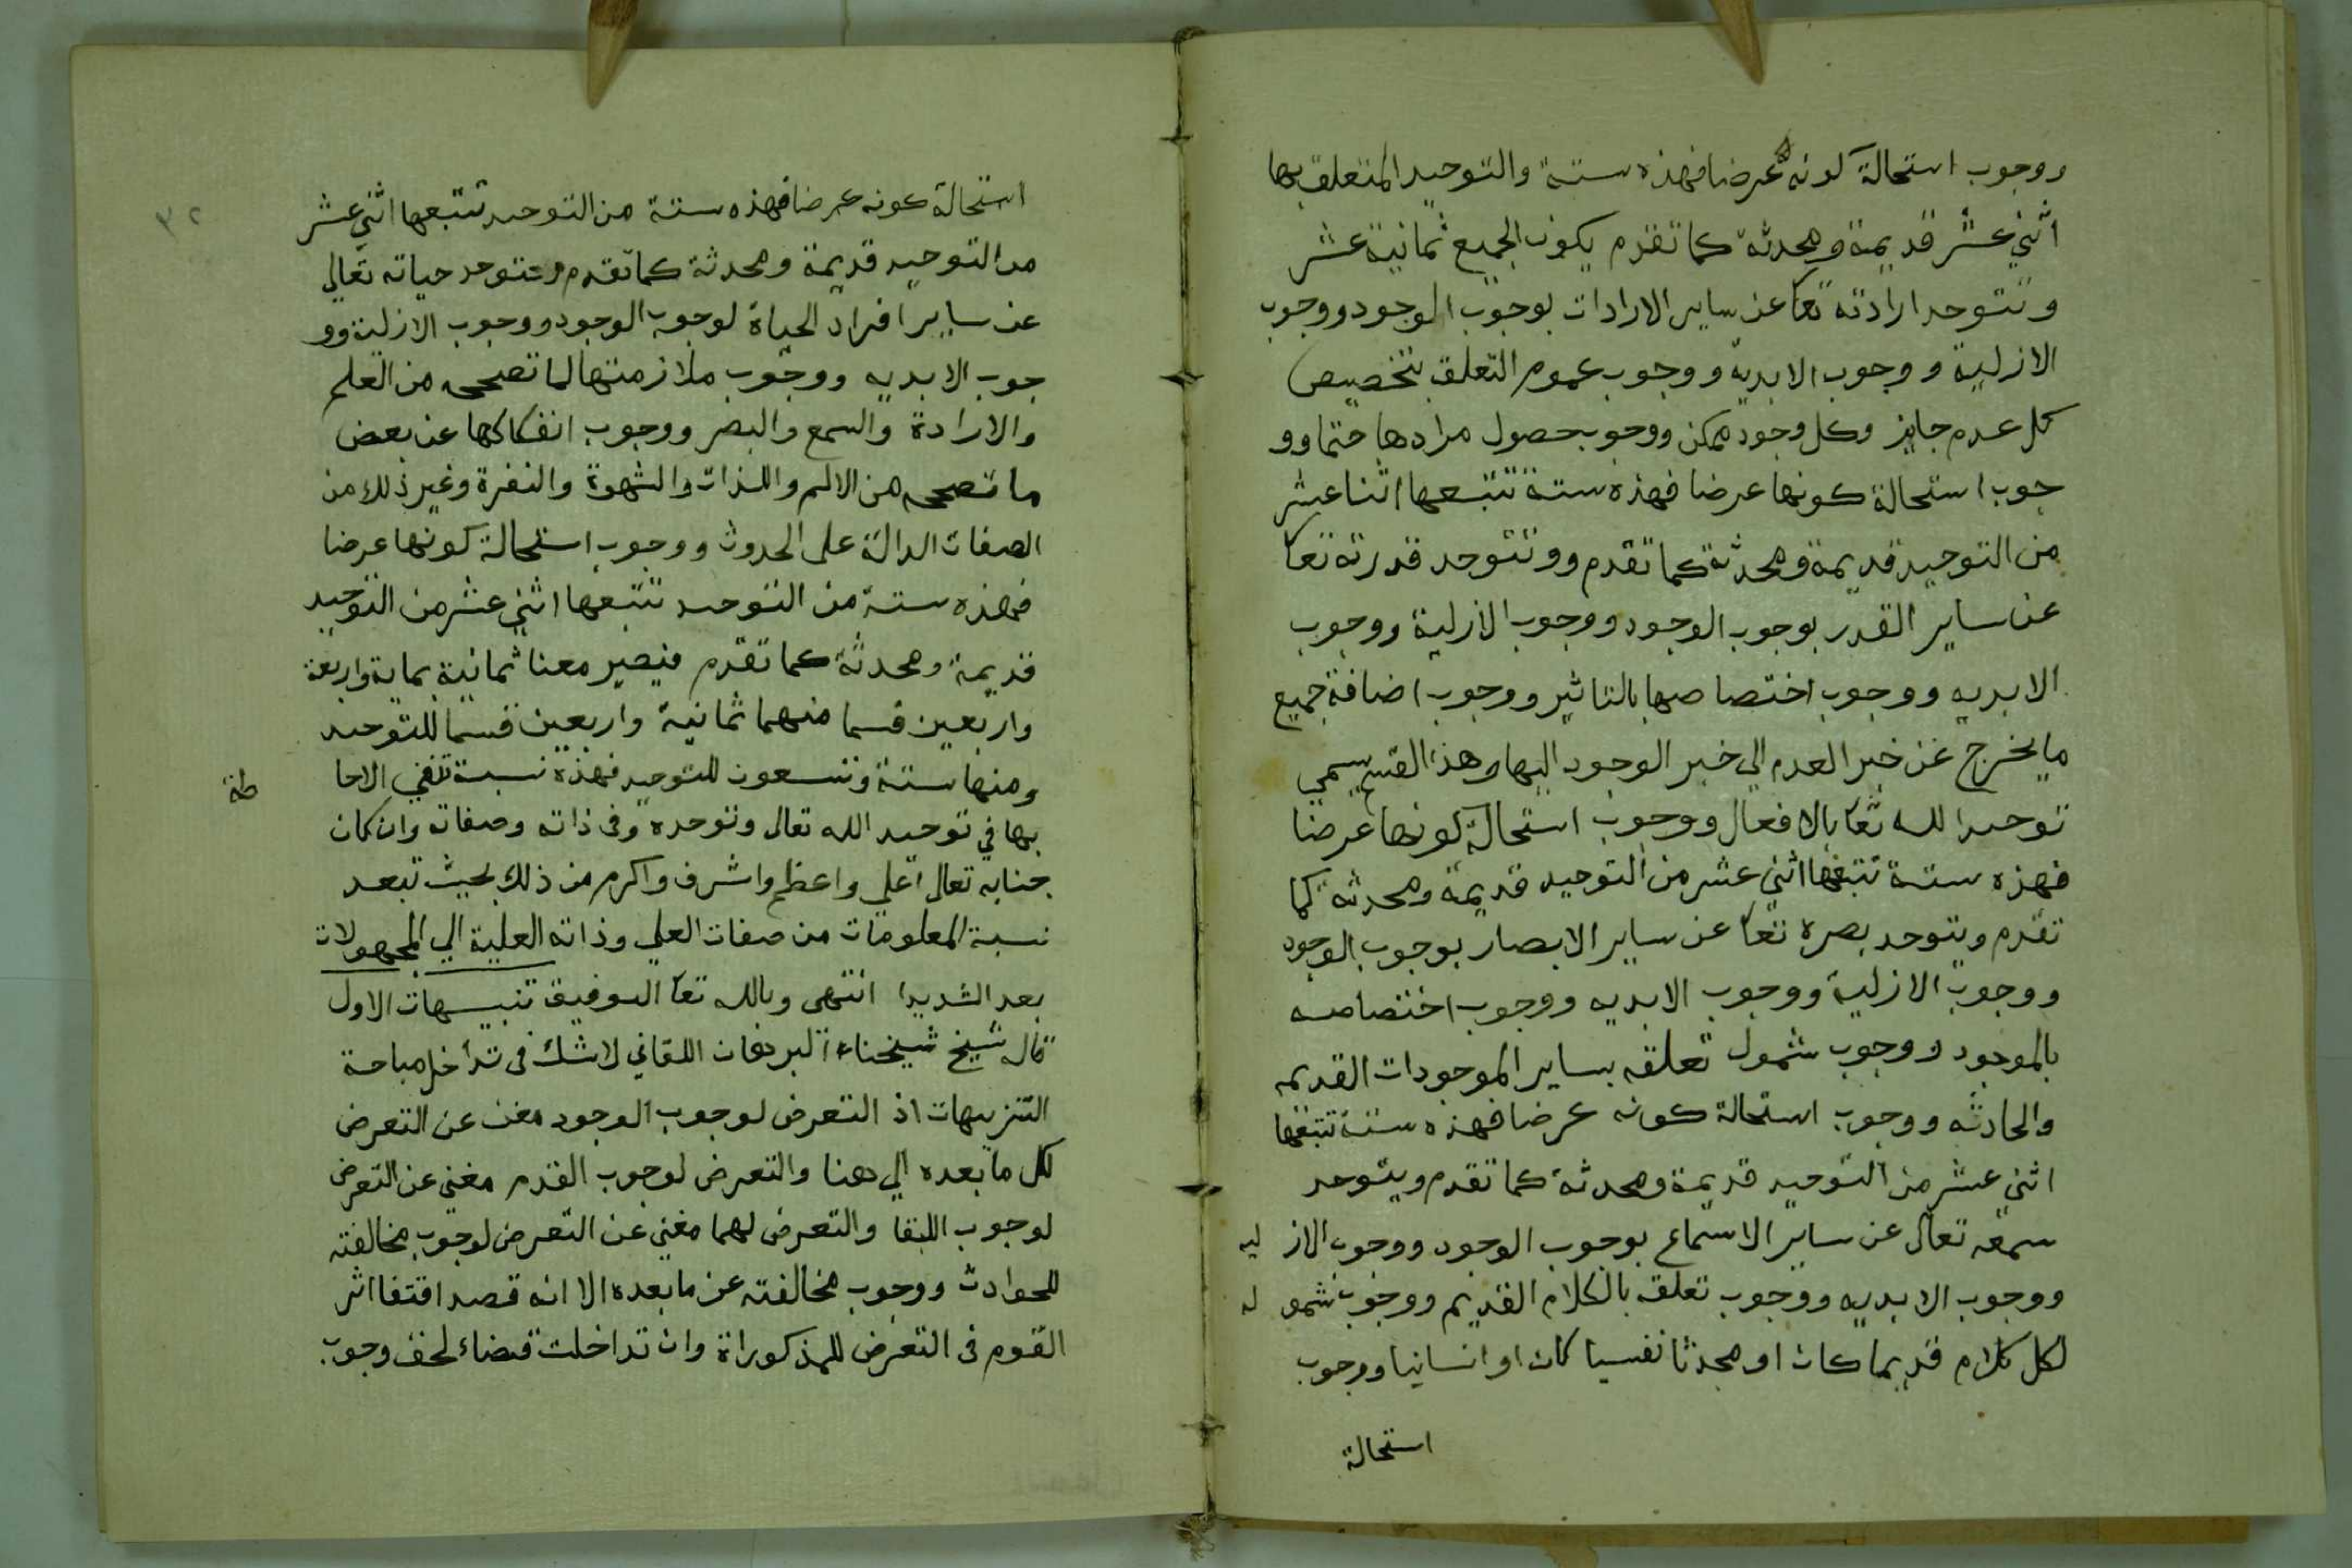 ووجوب استحالة كونه عرضا فهذه ستة والتوحيد المتعلق بها
اثني عشر قديمة ومحدثة كما تقدم يكون الجميع ثمانية عشر
وتتوحد ارادته تعا عن ساير الارادات بوجوب الوجود ووجوب
الازلية ووجوب الابدية ووجوب عموم التعلق بتخصيص
كل عدم جايز وكل وجود ممكن ووجوب حصول مرادها حتما وو
جوب استحالة كونها عرضا فهذه ستة تتبعها اثنا عشر
من التوحيد قديمة ومحدثة كما تقدم وو تتوحد قدرته تعا
عن ساير القدر بوجوب الوجود ووجوب الازلية ووجوب
الابديه ووجوب اختصاصها بالتاثير ووجوب اضافة جميع
ما يخرج عن خبر العدم الي خبر الوجود اليها وهذا القسم سمي
توحيد الله تعا بالافعال ووجوب استحالة كونها عرضا
فهذه ستة تتبعها اثني عشر من التوحيد قديمة ومحدثة كما
تقدم ويتوحد بصره تعا عن ساير الابصار بوجوب الوجود
ووجوب الازلية ووجوب الابديه ووجوب اختصاصه
بالموجود ووجوب شمول تعلقه بساير الموجودات القديمه
والحادثه ووجوب استحالة كونه عرضا فهذه ستة تتبعها
اثني عشر من التوحيد قديمة ومحدثة كما تقدم ويتوحد
سمعه تعالى عن ساير الاسماع بوجوب الوجود ووجوب الاز ليه
ووجوب الابديه ووجوب تعلقه بالكلام القديم ووجوب شمو له
لكل كلام قديما كان او محدثا نفسيا كان او انسانيا ووجوب
استحالة
٣٢
استحالة كونه عرضا فهذه ستة من التوحيد تتبعها اثني عشر
من التوحيد قديمة ومحدثة كما تقدم وتتوحد حياته تعالي
عن ساير افراد الحياة لوجوب الوجود ووجوب الازلية وو
جوب الابديه ووجوب ملازمتها لما تصححه من العلم
والارادة والسمع والبصر ووجوب انفكاكها عن بعض
ما تصححه من الالم واللذات والشهوة والنفرة وغير ذلك من
الصفات الدالة على الحدوث ووجوب استحالة كونها عرضا
فهذه ستة من التوحيد تتبعها اثني عشر من التوحيد
قديمة ومحدثة كما تقدم فيصير معنا ثمانية بماية واربعة
واربعين قسما منهما ثمانية واربعين قسما للتوحيد
ومنها ستة وتسعون للتوحيد فهذه نسبة تنفي الاحا طة
بها في توحيد الله تعالى وتوحده وفى ذاته وصفاته وان كان
جنابه تعالى اعلي واعظم واشرف واكرم من ذلك بحيث تبعد
نسبة المعلومات من صفات العلي وذاته العلية الي المجهولات
بعد الشديدا انتهى وبالله تعا التوفيق تنبيهات الاول
قال شيخ شيخناء البرهان اللقاني لاشك فى تداخل مباحة
التنزيهات اذ التعرض لوجوب الوجود مغن عن التعرض
لكل ما بعده الي هنا والتعرض لوجوب القدم مغني عن التعرض
لوجوب اللبقا والتعرض لهما مغني عن التعرض لوجوب مخالفته
للحوادث ووجوب مخالفته عن ما بعده الا انه قصد اقتفا اثر
القوم فى التعرض للمذكوراة وان تداخلت قضاء لحق وجوب